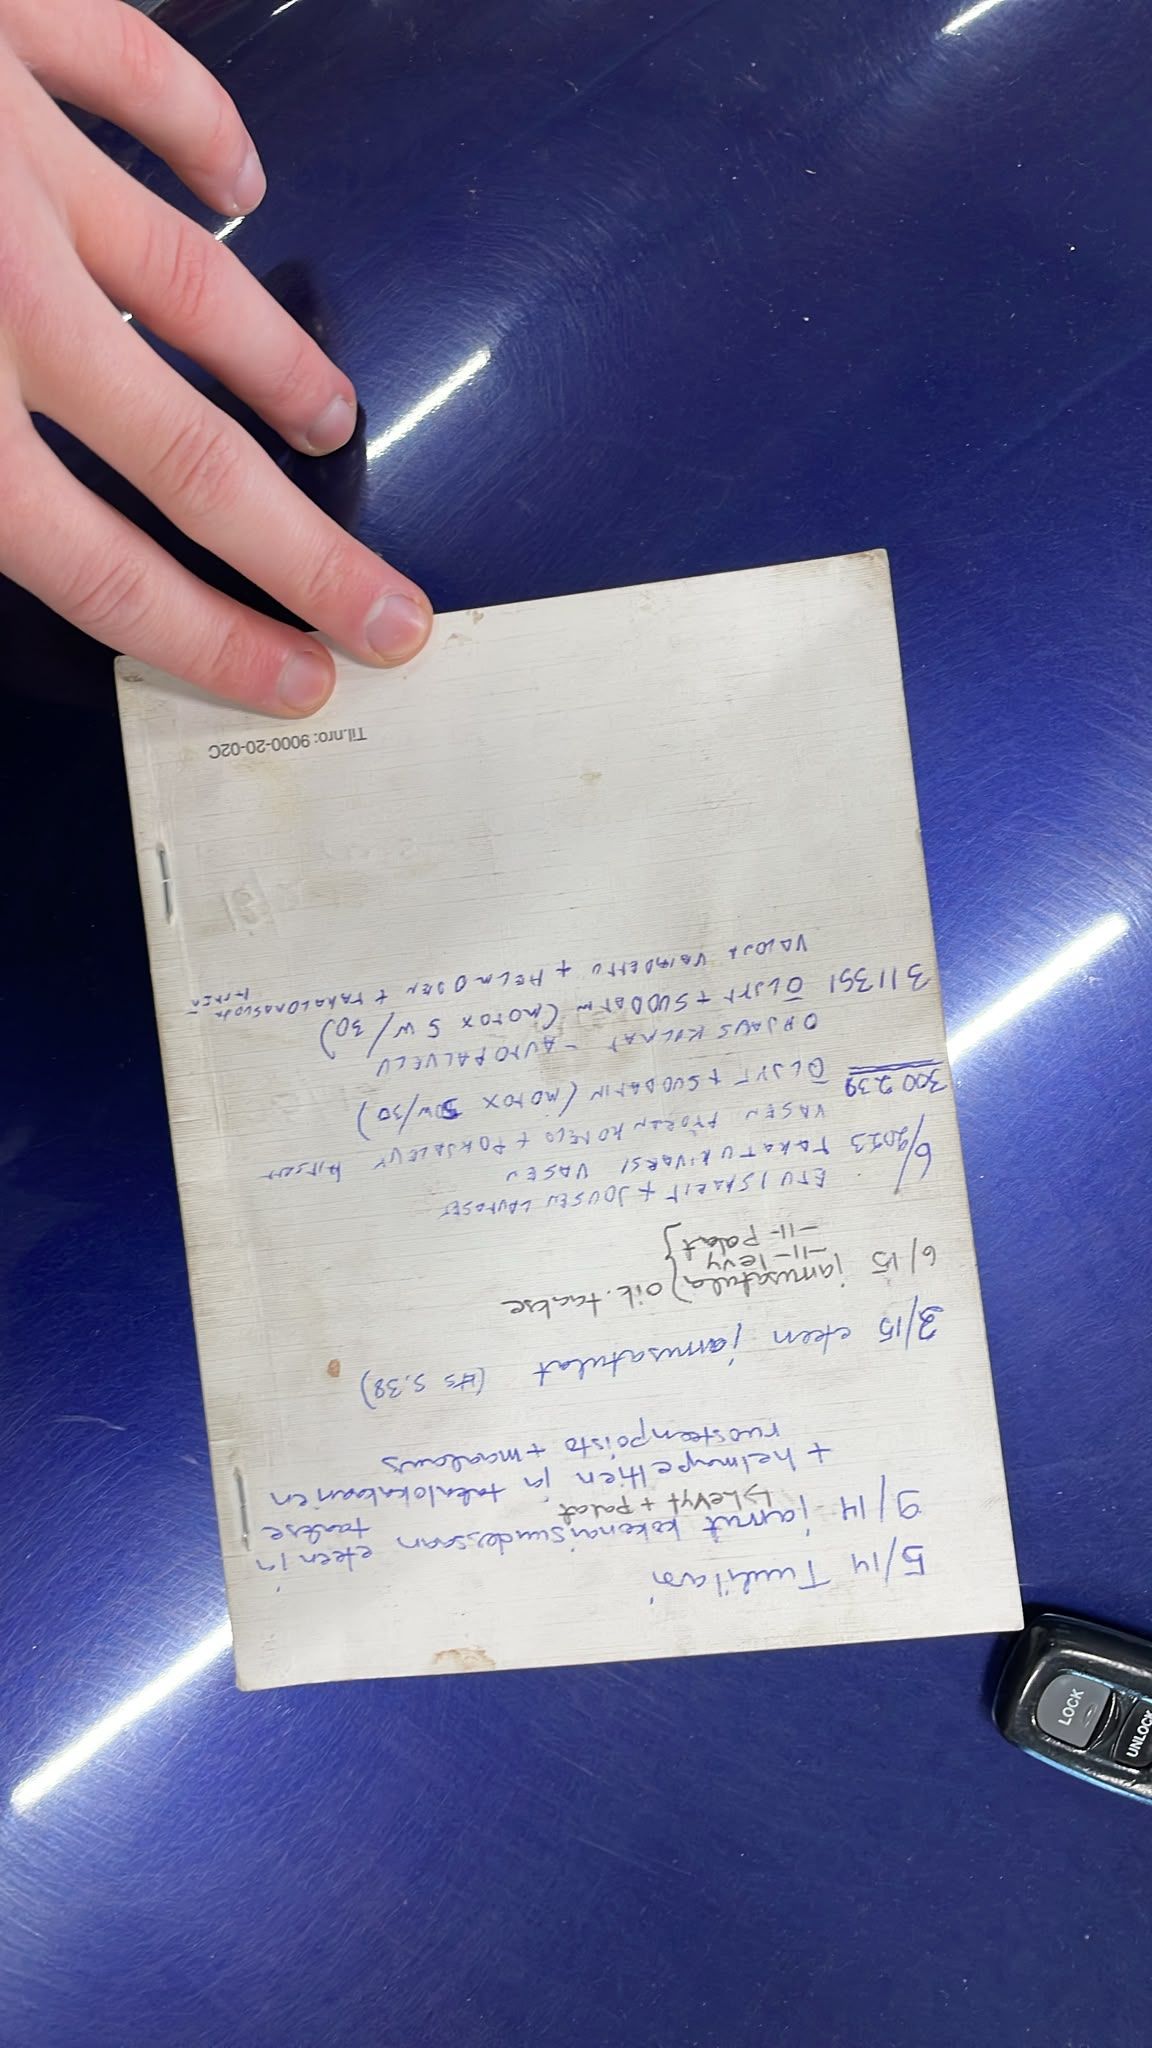 5/14 Tuulilasi
9/14 jarrut kokonaisuudessaan eteen ja taakse
↳ Levyt + palat
+ helmapeltien ja takalokasuojien
ruosteenpoisto + maalaus
3/15 eteen jarrusatulat (kts s.38)
6/15 jarrusatula } oik. taakse
-11- levy
-11- palat
ETU ISKARIT + JOUSEN LAUTASET
6/2023 TAKATUKIVARSI VASEN
VASEN PYÖRÄNKOTELO + POHJALEVY HITSATTU
300 239 ÖLJYT + SUODATIN (MOTOX 5W/30)
OHJAUSKULMAT - AUTOPALVELU
311351 ÖLJYT + SUODATIN (MOTOX 5W/30)
VALOJA VAIHDETTU + HELMOJEN +
Til.nro: 9000-20-02C
LOCK
UNLOCK